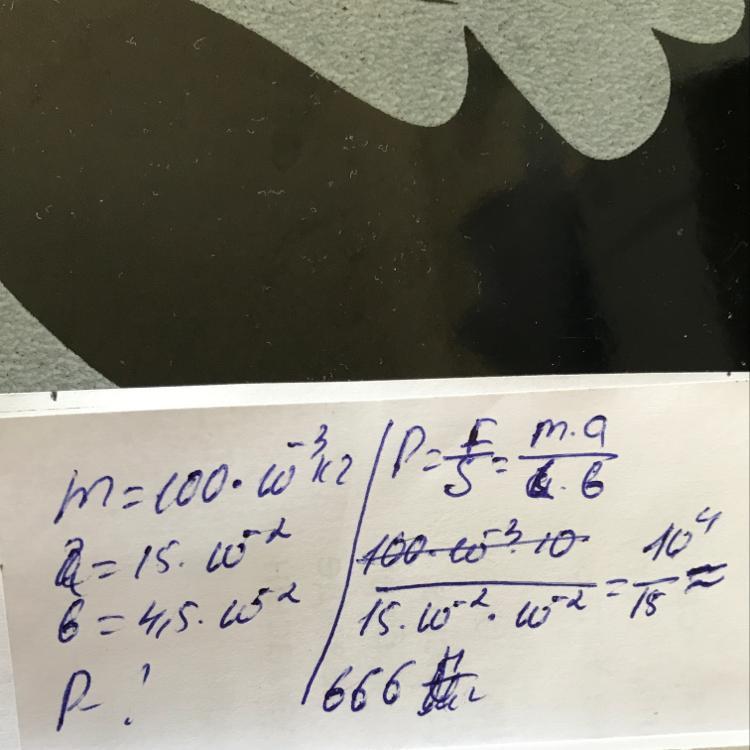 m = 100 · 10⁻³ кг
a = 15 · 10⁻²
б = 4,5 · 10⁻²
P - ?
P = F/S = m·g/a·б
100·10⁻³·10/15·10⁻²·10⁻² = 10⁴/15 ≈
666